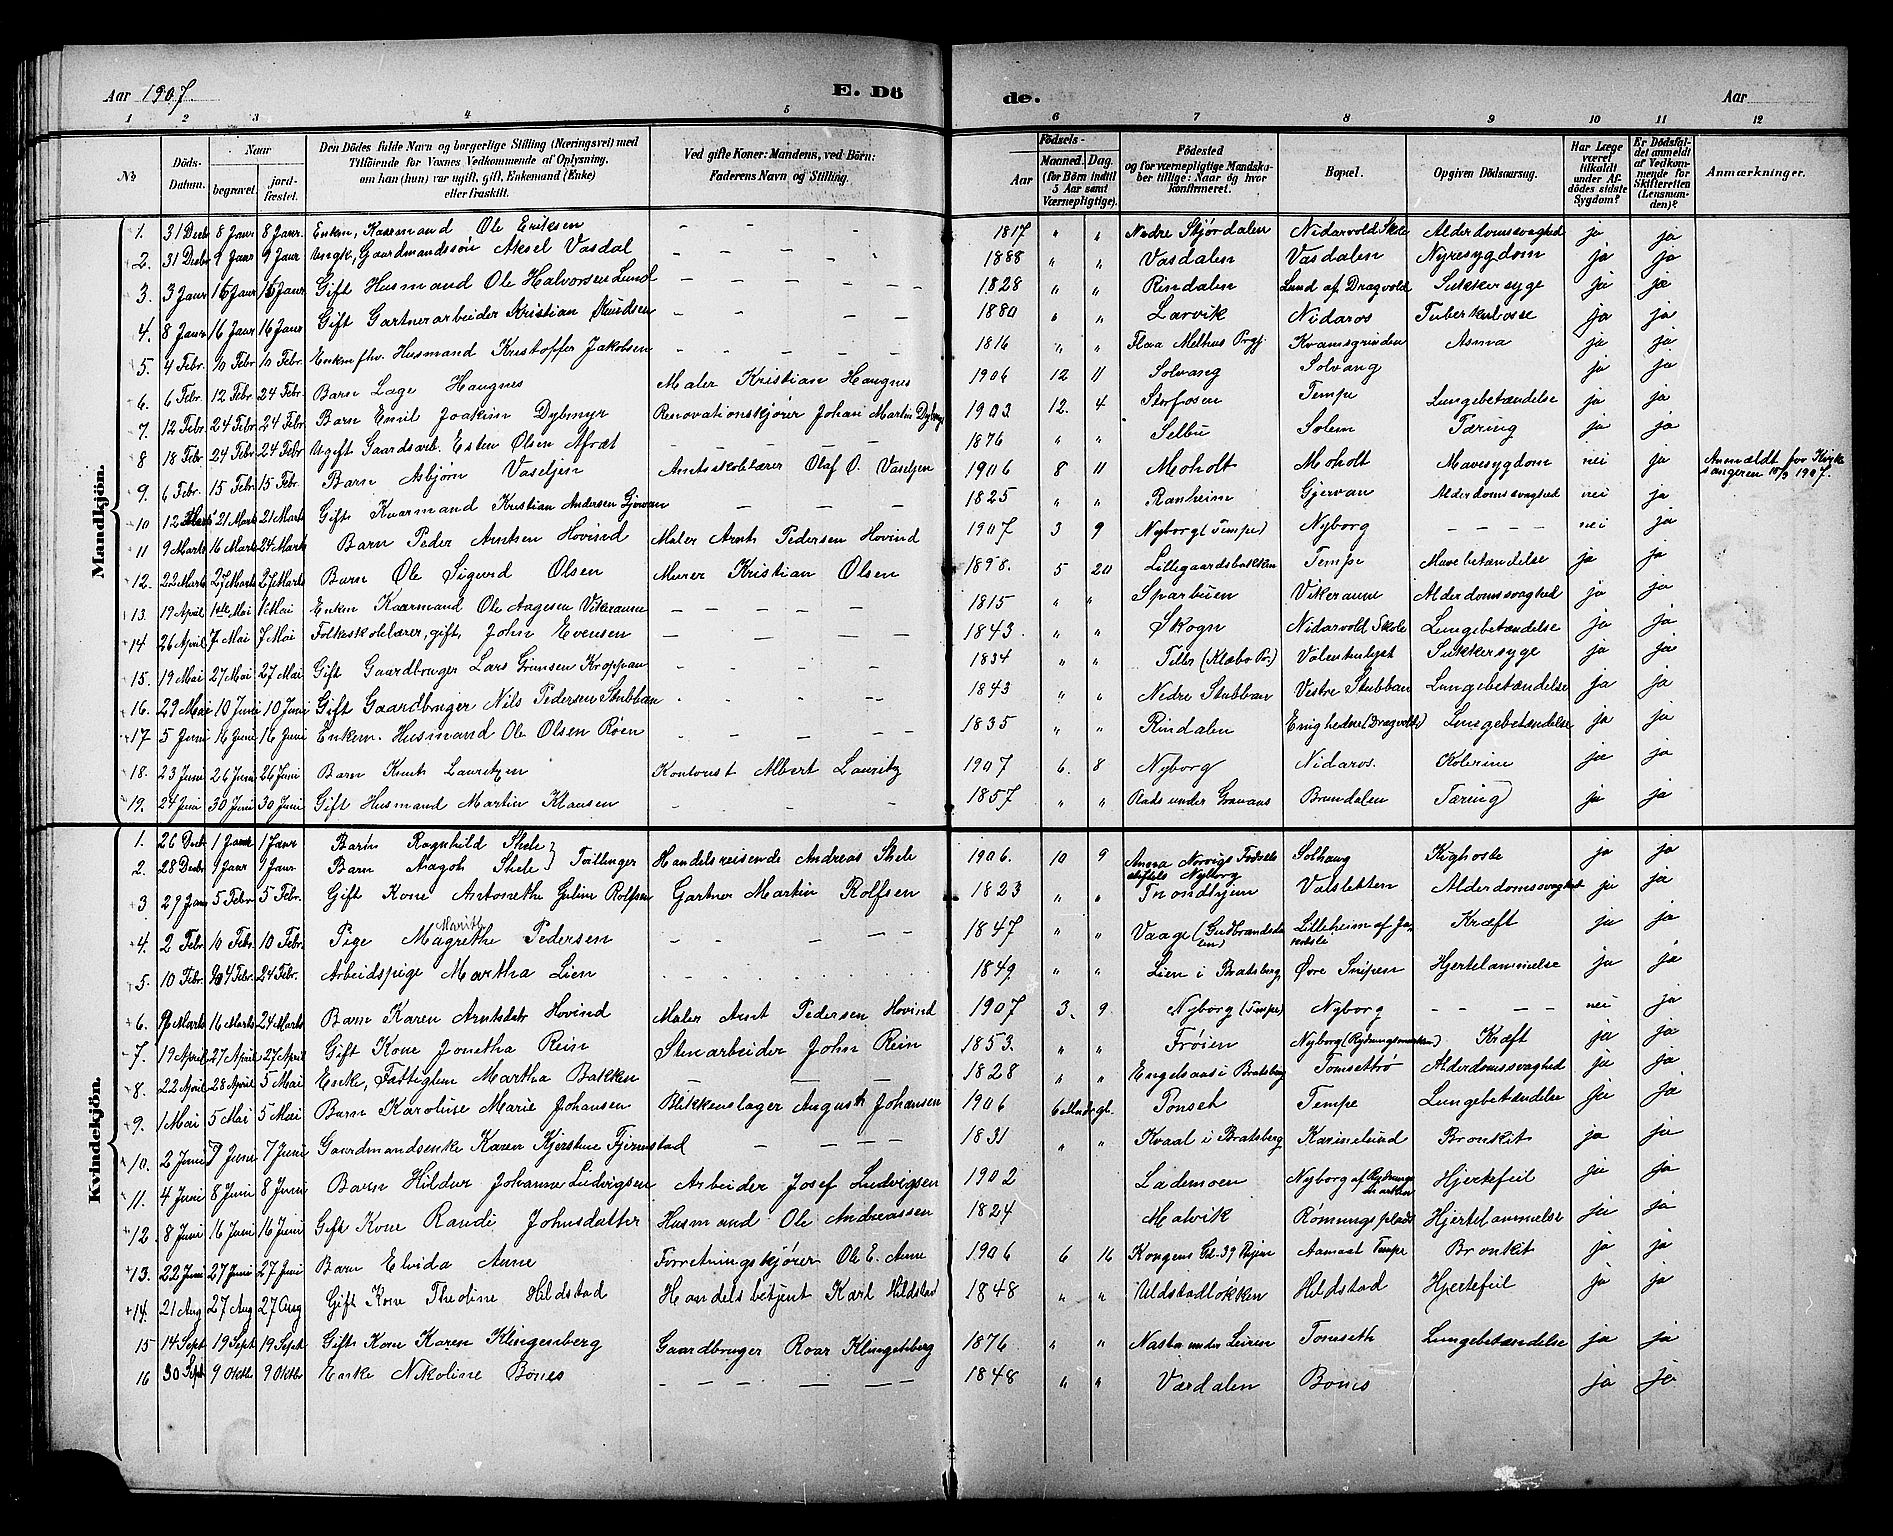 Aar 1907. E. Dö de. Aar
1 2 3 4 5 6 7 8 9 10 11 12
No Döds-Datum. Naar begravet. jord-fæstet. Den Dödes fulde Navn og borgerlige Stilling (Næringsvei) med Tilföiende for Voxnes Vedkommende af Oplysning, om han (hun) var ugift, gift, Enkemand (Enke) eller fraskilt. Ved gifte Koner: Mandens, ved Börn: Faderens Navn og Stilling. Födsels- Aar Maaned. Dag. (for Börn indtil 5 Aar samt Værnepligtige). Födested og for værnepligtige Mandskaber tillige: Naar og hvor konfirmeret. Bopæl. Opgiven Dödsaarsag. Har Læge været tilkaldt under Afdödes sidste Sygdom? Er Dödsfaldet anmeldt af Vedkommende for Skifteretten (Lensmanden)? Anmærkninger.
Mandkjön.
1. 31 Decb 8 Janr 8 Janr. Enkm, Kaarmand Ole Eriksen - - - - 1817 " " Nedre Stjørdalen Nidarvold Skole Alderdomssvaghed ja ja
2. 31 Decbr 9 Janr 9 Janr Ungk, Gaardmandssøn Aksel Vasdal - - - - 1888 " " Vasdalen Vasdalen Nyresygdom ja ja
3. 3 Janr 16 Janr 16 Janr Gift Husmand Ole Halvorsen Lund - - - - 1828 " " Rindalen Lund af Dragvold Sukkersyge ja ja
4. 8 Janr 16 Janr 16 Janr Gift Gartnerarbeider Kristian Knudsen - - - - 1880 " " Larvik Nidaros Tuberkulose ja ja
5. 4 Febr 10 Febr 10 Febr Enkm fhv. Husmand Kristoffer Jakobsen - - - - 1816 " " Flaa Melhus Prgj. Kvamsgrinden Asma ja ja
6. 6 Febr. 12 Febr 24 Febr Barn Lage Haugnes Maler Kristian Haugnes 1906 12 11 Solvang Solvang ja ja
7. 12 Febr 24 Febr 24 Febr. Barn Emil Joakim Dybmyr Renovationskjører Johan Martin Dybmyr 1903 12. 4 Storfosen Tempe Lungebetændelse ja ja
8 18 Febr 24 Febr 24 Febr Ugift Gaardsarb. Esten Olsen Afræt - - - - 1876 " " Selbu Solem Tæring ja ja
9. 6 Febr. 15 Febr 15 Febr. Barn Asbjørn Vaseljen Amtsskolelærer Olaf O. Vaseljen 1906 8 11 Moholt Moholt Mavesygdom nei ja Anmældt for Kirkesangeren 10/3 1907.
10 12 Marts 21 Marts 21 Marts Gift Kaarmand Kristian Andersen Gjervan - - - - 1825 " " Ranheim Gjervan Alderdomssvaghed nei ja
11 9 Marts 16 Marts 24 Marts Barn Peder Arntsen Hovind Maler Arnt Pedersen Hovind 1907 3 9 Nyborg (Tempe) Nyborg - - - - nei ja
12. 22 Marts 27 Marts 27 Marts Barn Ole Sigurd Olsen Murer Kristian Olsen 1898. 5 20 Lillegaardsbakken Tempe Mavebetændelse ja ja
13. 19 April 1ste Mai 1st Mai Enkm Kaarmand Ole Aagesen Vikeraunen - - - - 1815 " " Sparbuen Vikeraune Alderdomssvaghed ja ja
14 26 April 7 Mai 7 Mai Folkeskolelærer, gift, John Evensen - - - - 1843. " " Skogn Nidarvold Skole Lungebetændelse ja ja
15. 19 Mai 27 Mai 27 Mai Gift Gaardbruger Lars Grimsen Kroppan - - - - 1834 " " Tiller (Klæbo Pr.) Valentinlyst Sukkersyge ja ja
16. 29 Mai 10 Juni 10 Juni Gift Gaardbruger Nils Pedersen Stubban - - - - 1843 " " Nedre Stubban Vestre Stubban Lungebetændelse ja ja
17 5 Juni 16 Juni 16 Juni Enkem. Husmand Ole Olsen Røen - - - - 1835 " " Rindalen Enigheden (Dragvold) Lungebetændelse ja ja
18. 23 Juni 26 Juni 26 Juni Barn Knut Lauritzen Kontorist Albert Lauritz 1907 6. 8 Nyborg Nidaros. Kolerine ja ja
19. 24 Juni 30 Juni 30 Juni Gift Husmand Martin Klausen - - - 1857 " " under Granaas Brundalen Tæring ja ja
Kvindekjön.
1. 26 Decb 1 Janr 1 Janr Barn Ragnhild Skele
2. 28 Decbr 9 Janr 9 Janr Barn Aagot Skele } Tvillinger Handelsreisende Andreas Skele 1906. 10 9 Anna Norvigs Fødselsstiftels Nyborg Solhaug Kighoste ja ja
3 29 Janr 5 Febr 5 Febr. Gift Kone Antonethe Guline Rolfsen Gartner Martin Rolfsen 1823 " " Trondhjem Valsletten Alderdomssvaghed ja ja
4. 2 Febr 10 Febr. 10 Febr. Pige Marit Magrethe Pedersen - - - - 1847 " " Vaage (Gudbrandsdalen) Lilleheim af Kræft ja ja
5. 10 Febr. 24 Febr. 24 Febr. Arbeidspige Martha Lien - - - 1849. " " Lien i Bratsberg Øvre Sneipen Hjertelammelse ja ja
6. 9 Marts 16 Marts 24 Marts Barn Karen Arntsdatr Hovind Maler Arnt Pedersen Hovind 1907 3. 9. Nyborg (Tempe) Nyborg - - - - nei ja
7. 19 April 27 April 27 April Gift Kone Jonetha Rein Stenarbeider John Rein 1853. " " Frøien Nyborg (Rydningsmarken) Kræft ja ja
8. 22 April 28 April 5 Mai Enke, Fattiglem Martha Bakken - - - 1828 " " Engelsaas i Bratsberg Tomsettrø Alderdomssvaghed ja ja
9. 1 Mai 5 Mai 5 Mai Barn Karoline Marie Johansen Blikkenslager August Johansen 1906 6 Mndr. gl. Ponset Tempe Lungebetændelse ja ja
10. 2 Juni 7 Juni 7 Juni Gaardmandsenke Karen Kjerstine Fjernstad - - - 1831 " " Kvaal i Bratsberg Karinelund Bronkit ja ja
11. 4 Juni 8 Juni 8 Juni Barn Hildur Johanne Ludvigsen Arbeider Josef Ludvigsen 1902 Lademoen Nyborg af Rydningsmarken Hjertefeil ja ja
12. 8 Juni 16 Juni 16 Juni Gift Kone Randi Johnsdatter Husmand Ole Andreassen 1824 Malvik Rømnings plads Hjertelammelse ja ja
13. 22 Juni 27 Juni 27 Juni Barn Elvida Aune Forretningskjører Ole E. Aune 1906 6 16 Kongens Gd. 39 Thjem Aamaat Tempe Bronkit ja ja
14. 21 Aug 27 Aug 27 Aug Gift Kone Theoline Hildstad Handelsbetjent Karl Hildstad 1848 " " Uldstadløkken Hildstad Hjertefeil ja ja
15 14 Sept 19 Sept 19 Sept Gift Kone Karen Klingenberg Gaardbruger Roar Klingenberg 1876 " " Nasta under Leiren Tomseth Lungebetændelse ja ja
16 30 Sept 9 Oktbr 9 Oktbr Enke Nikoline Bones - - - - - - 1848 " " Værdalen Bones ja ja